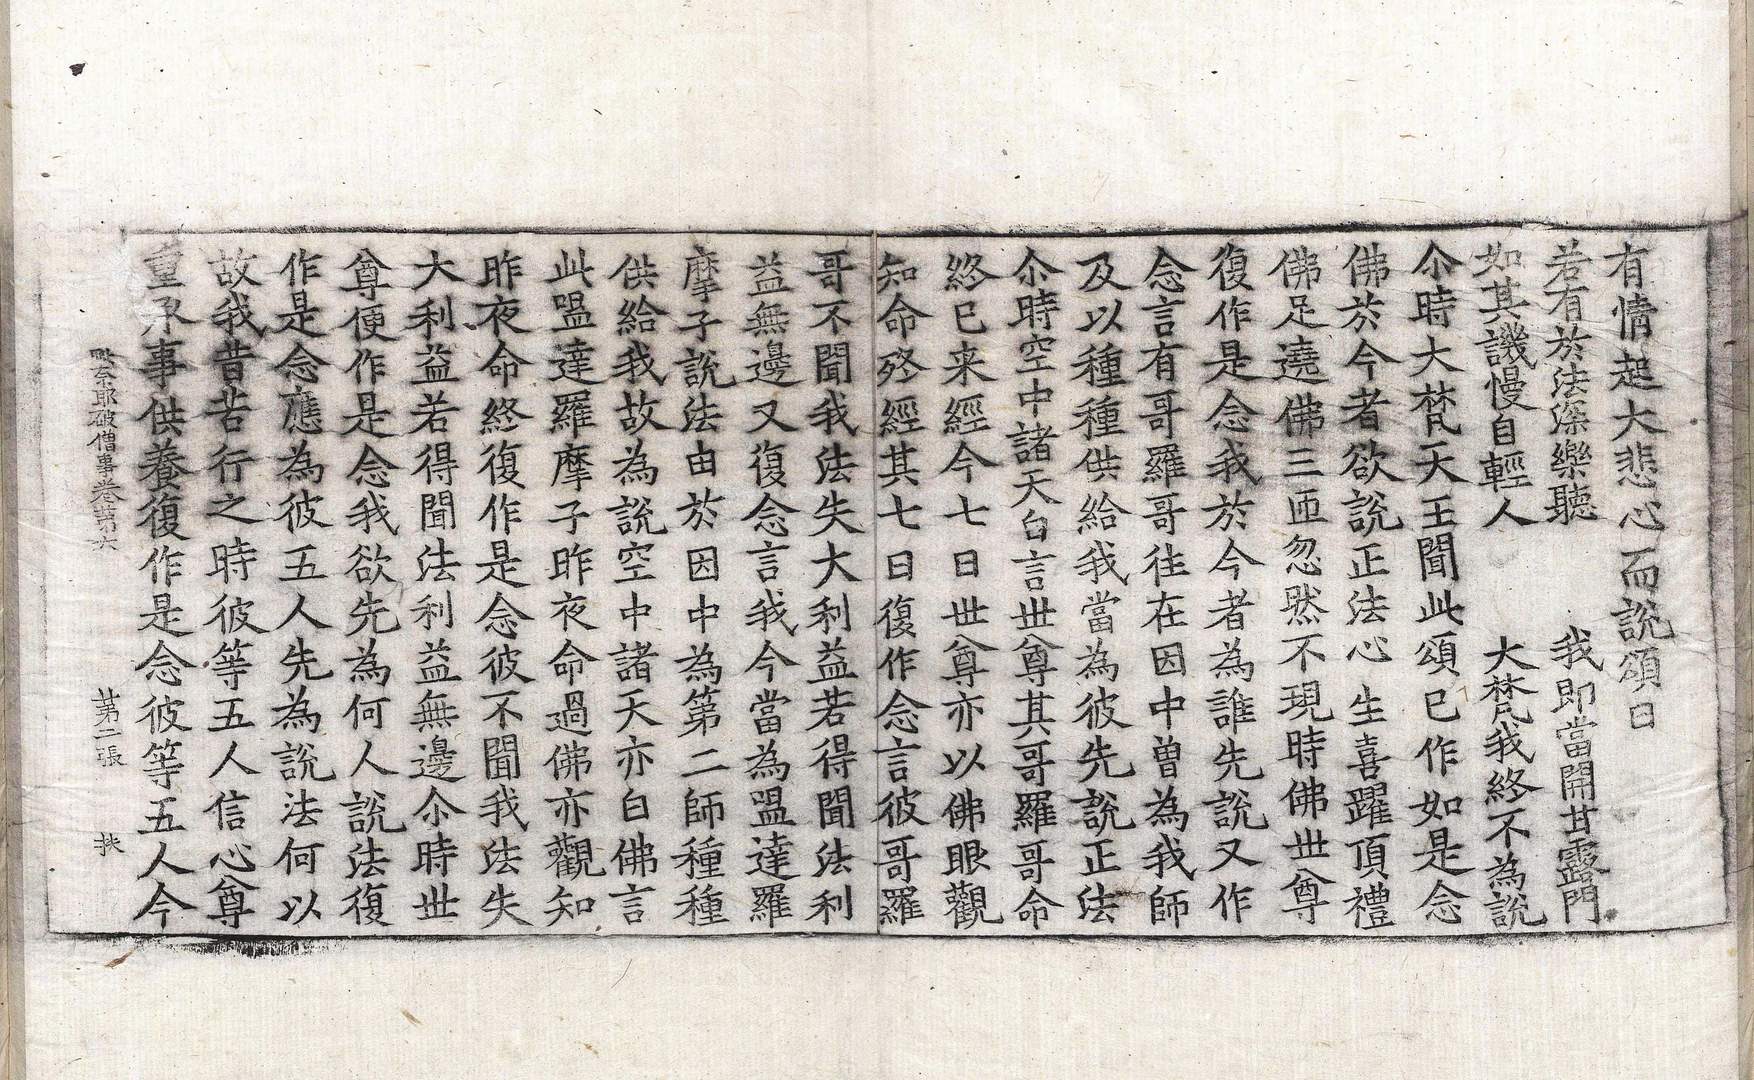 有情起大悲心而說頌曰
若有於法深樂聽　我即當開甘露門
如其譏慢自輕人　大梵我終不為說
尒時大梵天王聞此頌已作如是念
佛於今者欲說正法心生喜躍頂禮
佛足遶佛三匝忽然不現時佛世尊
復作是念我於今者為誰先說又作
念言有哥羅哥往在因中曾為我師
及以種種供給我當為彼先說正法
尒時空中諸天白言世尊其哥羅哥命
終已来經今七日世尊亦以佛眼觀
知命終經其七日復作念言彼哥羅
哥不聞我法失大利益若得聞法利
益無邊又復念言我今當為嗢達羅
摩子說法由於因中為第二師種種
供給我故為說空中諸天亦白佛言
此嗢達羅摩子昨夜命過佛亦觀知
昨夜命終復作是念彼不聞我法失
大利益若得聞法利益無邊尒時世
尊便作是念我欲先為何人說法復
作是念應為彼五人先為說法何以
故我昔苦行之時彼等五人信心尊
重承事供養復作是念彼等五人今
毗奈耶破僧事卷第六　第二張　挾